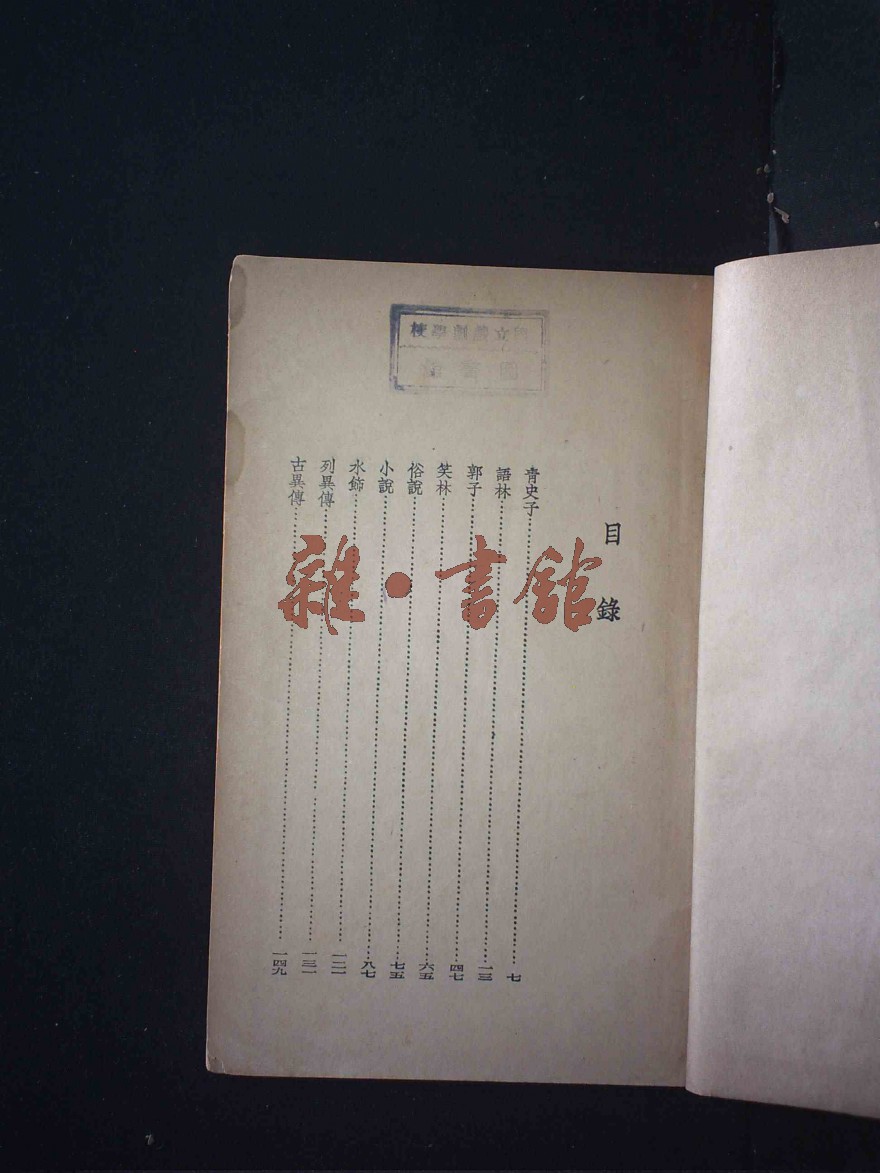 立劇學校
目錄
青史子……七
語林……一三
郭子……四七
笑林……六五
俗說……七五
小說……八七
水飾……一二一
列異傳……一三一
古異傳……一四九
雜·書館